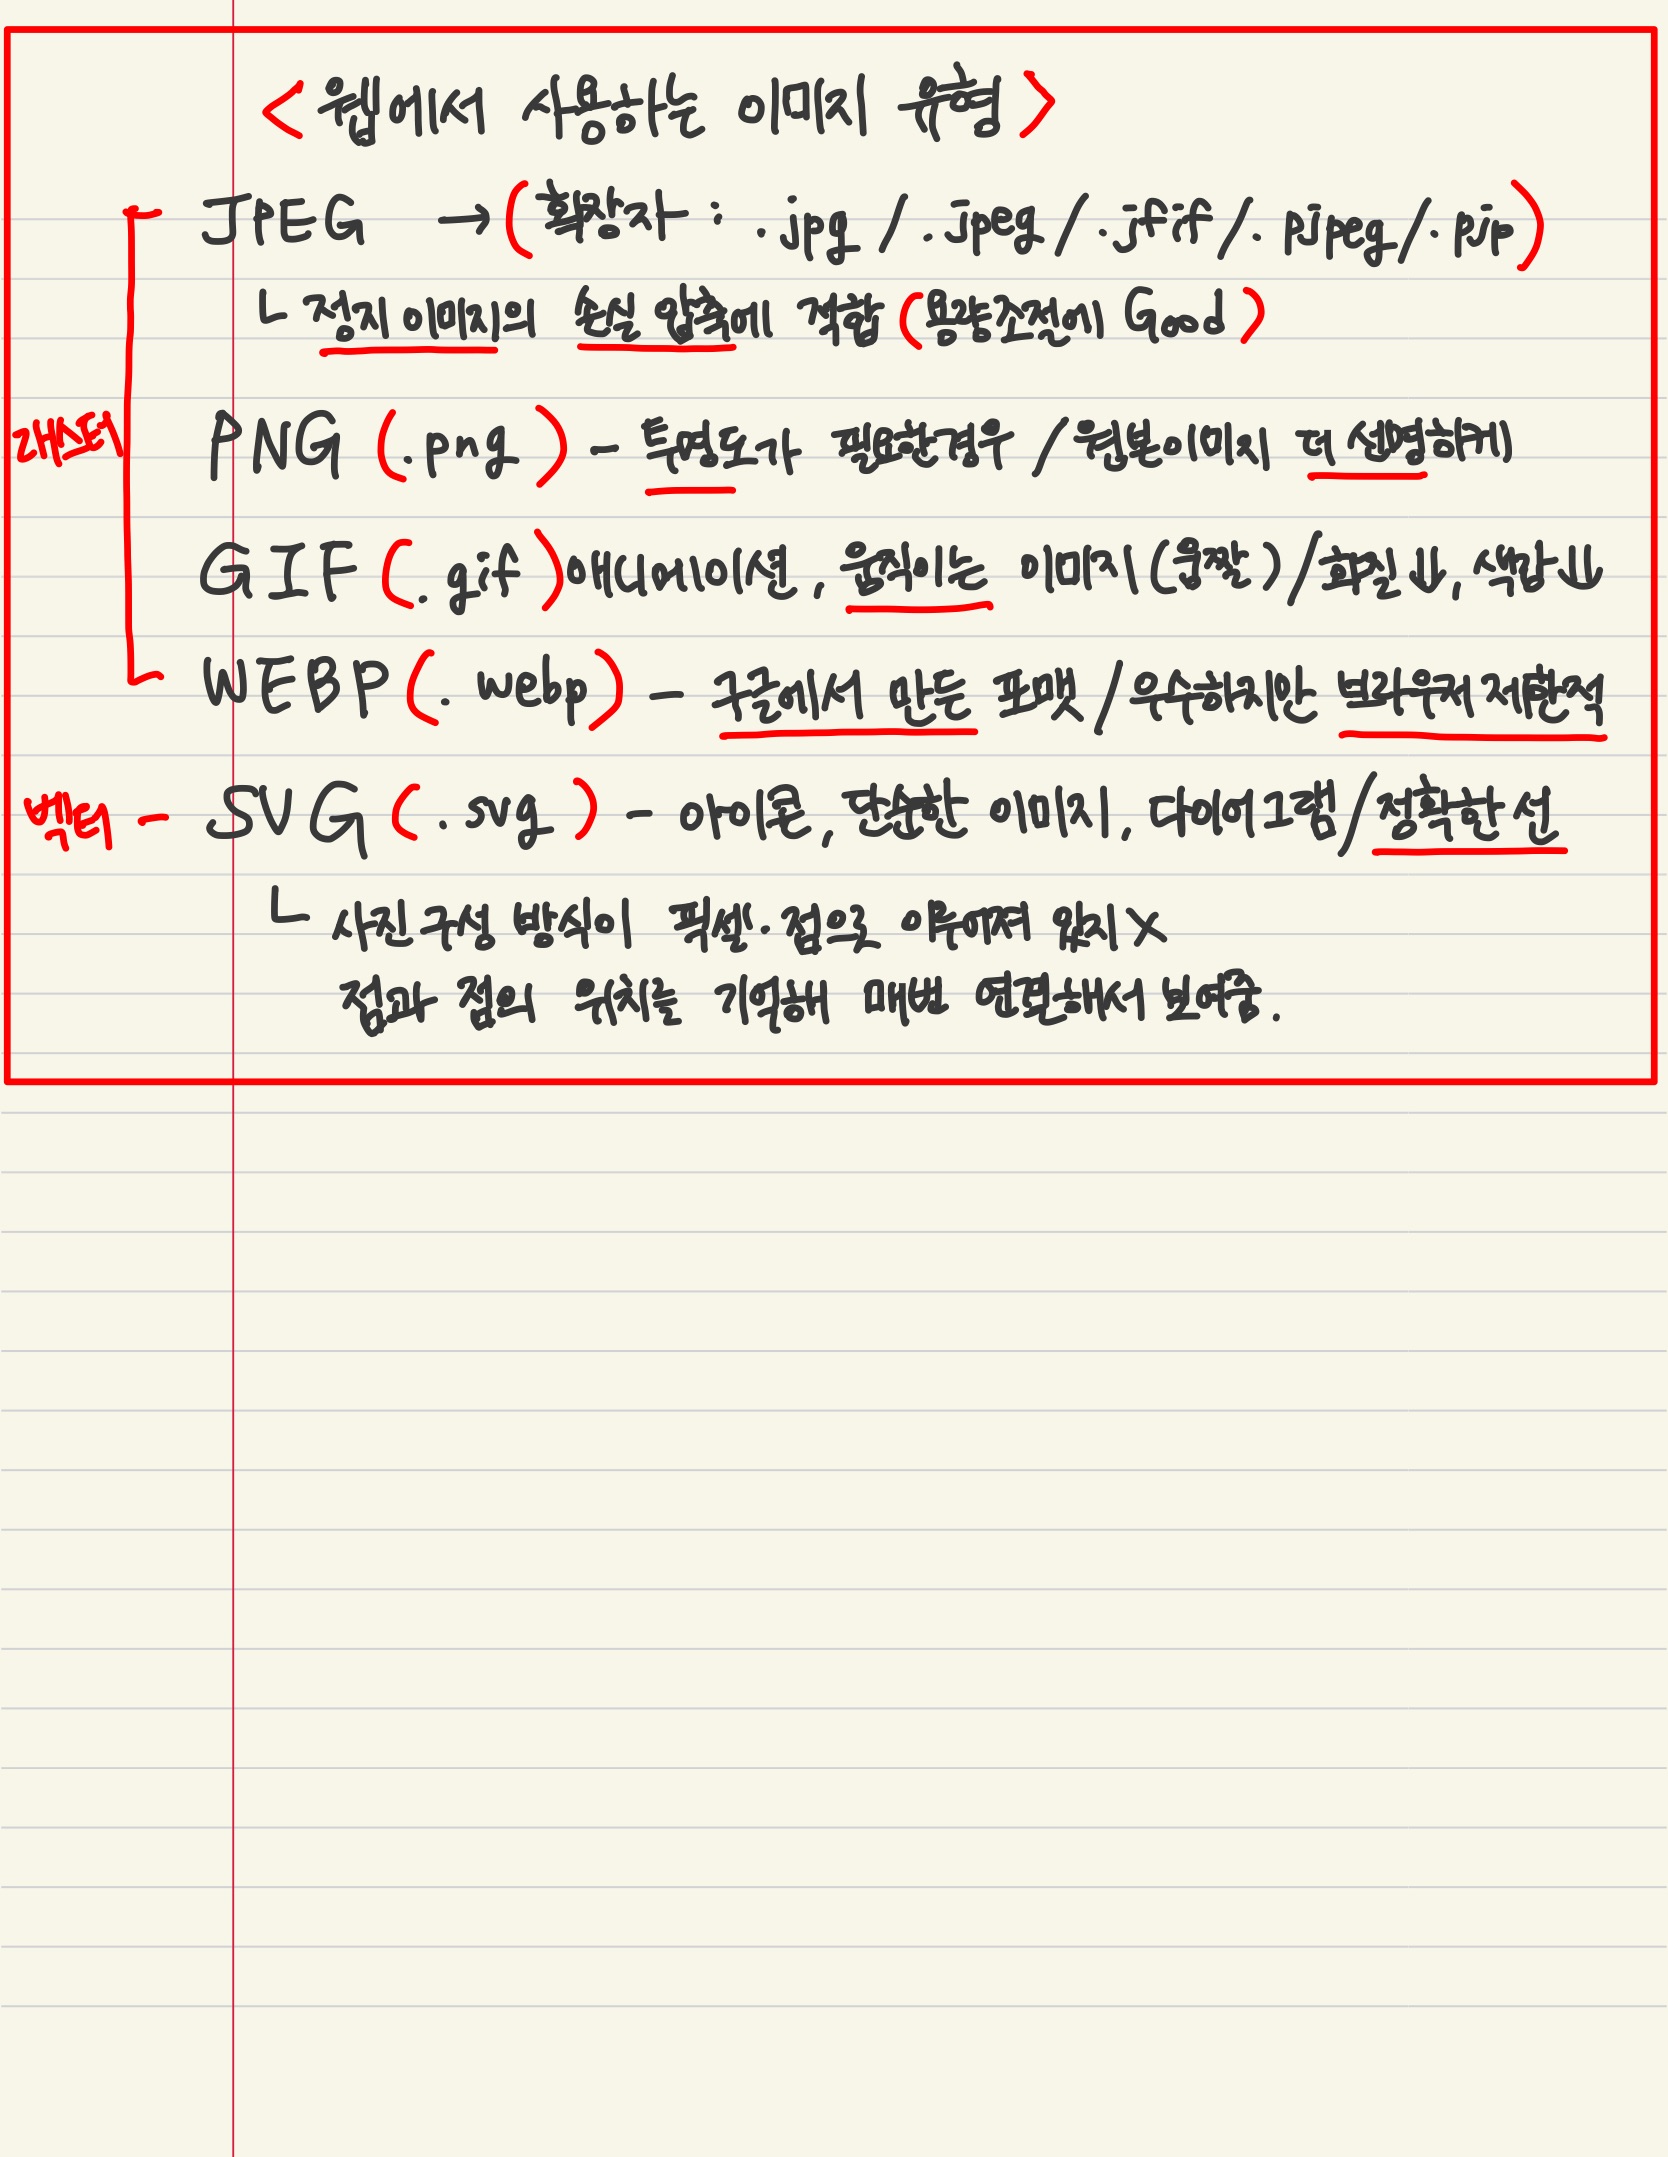 <웹에서 사용하는 이미지 유형>
JPEG → (확장자 : .jpg / .jpeg / .jfif / .pjpeg / .pjp)
└ 정지 이미지의 손실 압축에 적합 (용량조절에 Good)
래스터
PNG (.png) - 투명도가 필요한경우 / 원본이미지 더 선명하게
GIF (.gif) 애니메이션, 움직이는 이미지(움짤) / 화질⇓, 색감⇓
WEBP (.webp) - 구글에서 만든 포맷 / 우수하지만 브라우저 제한적
벡터 - SVG (.svg) - 아이콘, 단순한 이미지, 다이어그램 / 정확한 선
└ 사진 구성 방식이 픽셀·점으로 이루어져 있지 X
점과 점의 위치를 기억해 매번 연결해서 보여줌.